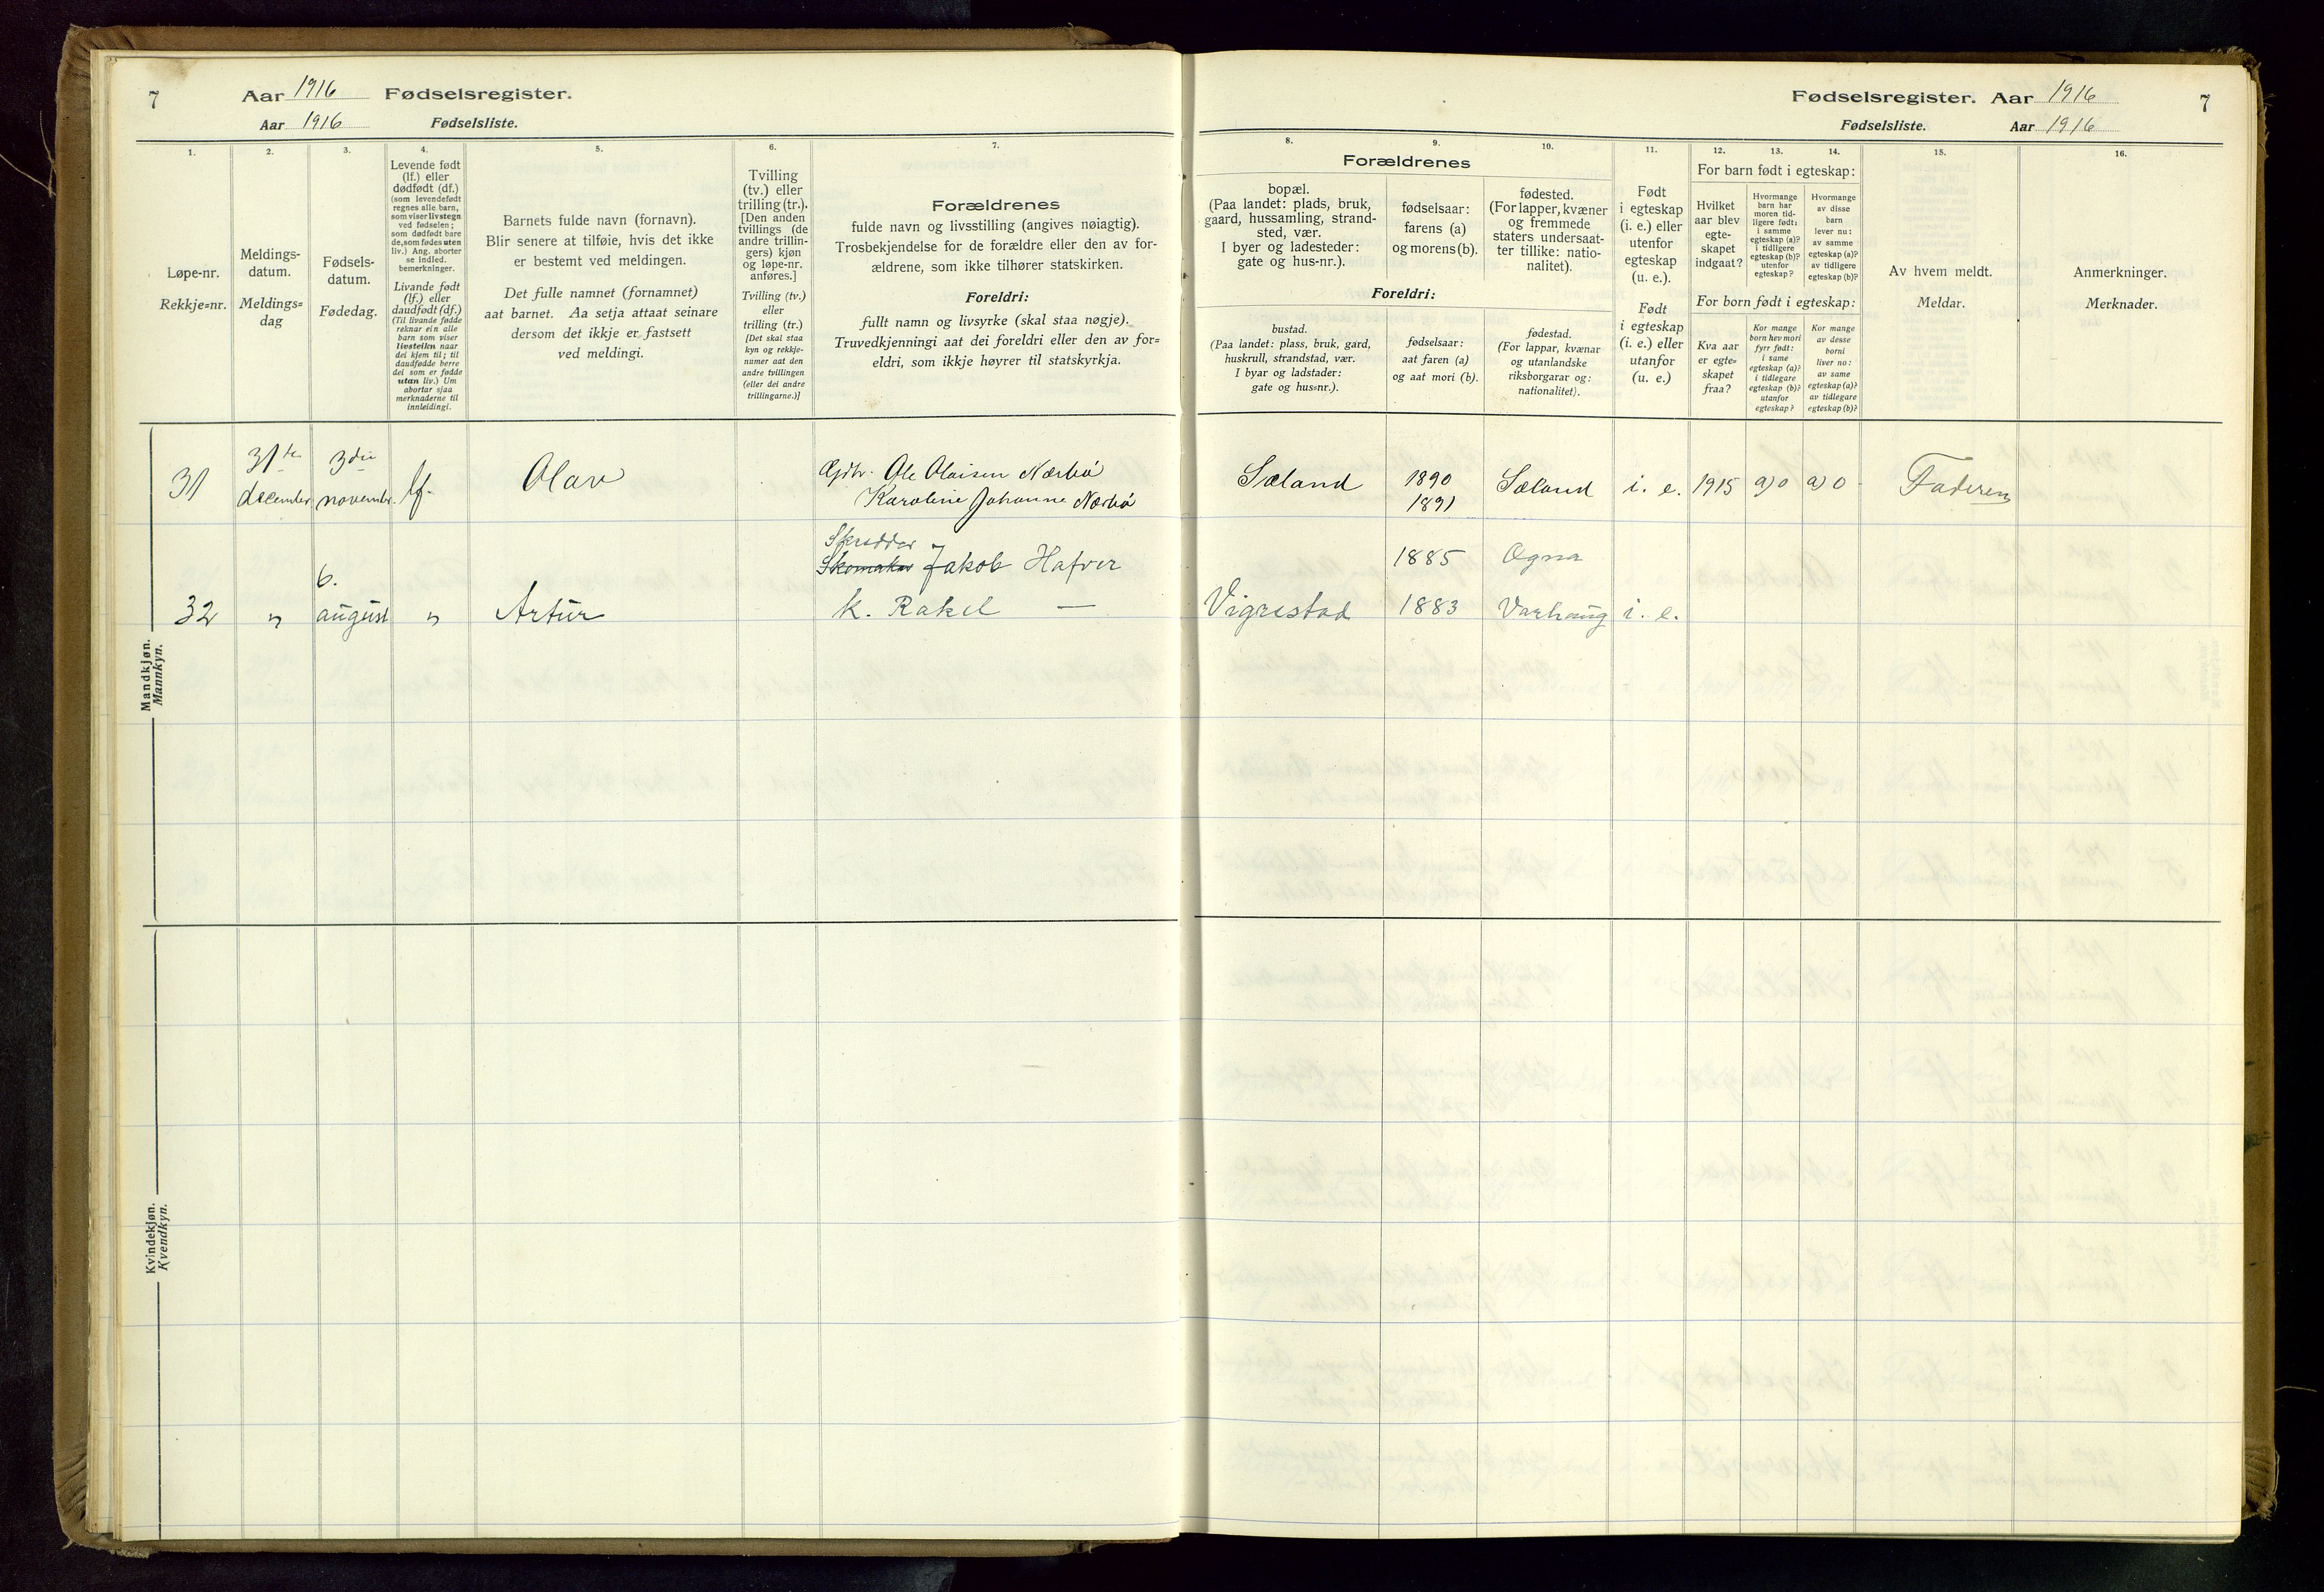 7
Aar 1916 Fødselsregister.
Aar 1916 Fødselsliste.
Fødselsregister. Aar 1916
7
Fødselsliste. Aar 1916
1.
Løpe-nr.
Rekkje=nr.
2.
Meldings-
datum.
Meldings=
dag
3.
Fødsels-
datum.
Fødedag.
4.
Levende født
(lf.) eller
dødfødt (df.)
(som levendefødt
regnes alle barn,
som viser livstegn
ved fødselen;
som dødfødt bare
de, som fødes uten
liv.) Ang. aborter
se indled.
bemerkninger.
Livande født
(lf.) eller
daudfødt (df.)
(Til livande fødde
reknar ein alle
barn som viser
livsteikn naar
dei kjem til; til
daudfødde berre
dei som er fødde
utan liv.) Um
abortar sjaa
merknaderne til
innleidingi.
5.
Barnets fulde navn (fornavn).
Blir senere at tilføie, hvis det ikke
er bestemt ved meldingen.
Det fulle namnet (fornamnet)
aat barnet. Aa setja attaat seinare
dersom det ikkje er fastsett
ved meldingi.
6.
Tvilling
(tv.) eller
trilling (tr.).
[Den anden
tvillings (de
andre trillin-
gers) kjøn
og løpe-nr.
anføres.]
Tvilling (tv.)
eller
trilling (tr.)
[Det skal staa
kyn og rekkje-
numer aat den
andre tvillingen
(eller dei andre
trillingarne.)]
7.
Forældrenes
fulde navn og livsstilling (angives nøiagtig).
Trosbekjendelse for de forældre eller den av for-
ældrene, som ikke tilhører statskirken.
Foreldri:
fullt namn og livsyrke (skal staa nøgje).
Truvedkjenningi aat dei foreldri eller den av for=
eldri, som ikkje høyrer til statskyrkja.
8. 9. 10.
Forældrenes
bopæl.
(Paa landet: plads, bruk,
gaard, hussamling, strand-
sted, vær.
I byer og ladesteder:
gate og hus-nr.).
fødselsaar:
farens (a)
og morens (b).
fødested.
(For lapper, kvæner
og fremmede
staters undersaat-
ter tillike: natio-
nalitet).
Foreldri:
bustad.
(Paa landet: plass, bruk, gard,
huskrull, strandstad, vær.
I byar og ladstader:
gate og hus=nr.).
fødselsaar:
aat faren (a)
og aat mori (b).
fødestad.
(For lappar, kvænar
og utanlandske
riksborgarar og:
nationalitet).
11.
Født
i egteskap
(i. e.) eller
utenfor
egteskap
(u. e.).
Født
i egteskap
(i. e.) eller
utanfor
(u. e.)
12. 13. 14.
For barn født i egteskap:
Hvilket
aar blev
egte-
skapet
indgaat?
Hvormange
barn har
moren tid-
ligere født:
i samme
egteskap (a)?
i tidligere
egteskap (b)?
utenfor
egteskap?
Hvormange
av disse
barn
lever nu:
av samme
egteskap (a)?
av tidligere
egteskap (b)?
For born født i egteskap:
Kva aar
er egte=
skapet
fraa?
Kor mange
born hev mori
fyrr født:
i same
egteskap (a)?
i tidlegare
egteskap (b)?
utanfor
egteskap?
Kor mange
av desse
borni
liver no:
av same
egteskap (a)?
av tidlegare
egteskap (b)?
15.
Av hvem meldt.
Meldar.
16.
Anmerkninger.
Merknader.
Mandkjøn.
Mannkyn.
31 31te december. 3die november. lf. Olav Gdbr. Ole Olaisen Nærbø
Karoline Johanne Nærbø
Sæland 1890 1891 Sæland i. e. 1915 a) 0 a) 0 Faderen
32 " 6. august " Artur
Skreddar
Skomaker Jakob Hafver 1885 Ogna
k. Rakel — Vigrestad 1883 Varhaug i. e.
Kvindekjøn.
Kvendkyn.